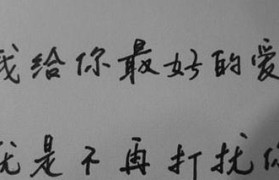 我给你最好的爱
就是不再打扰你